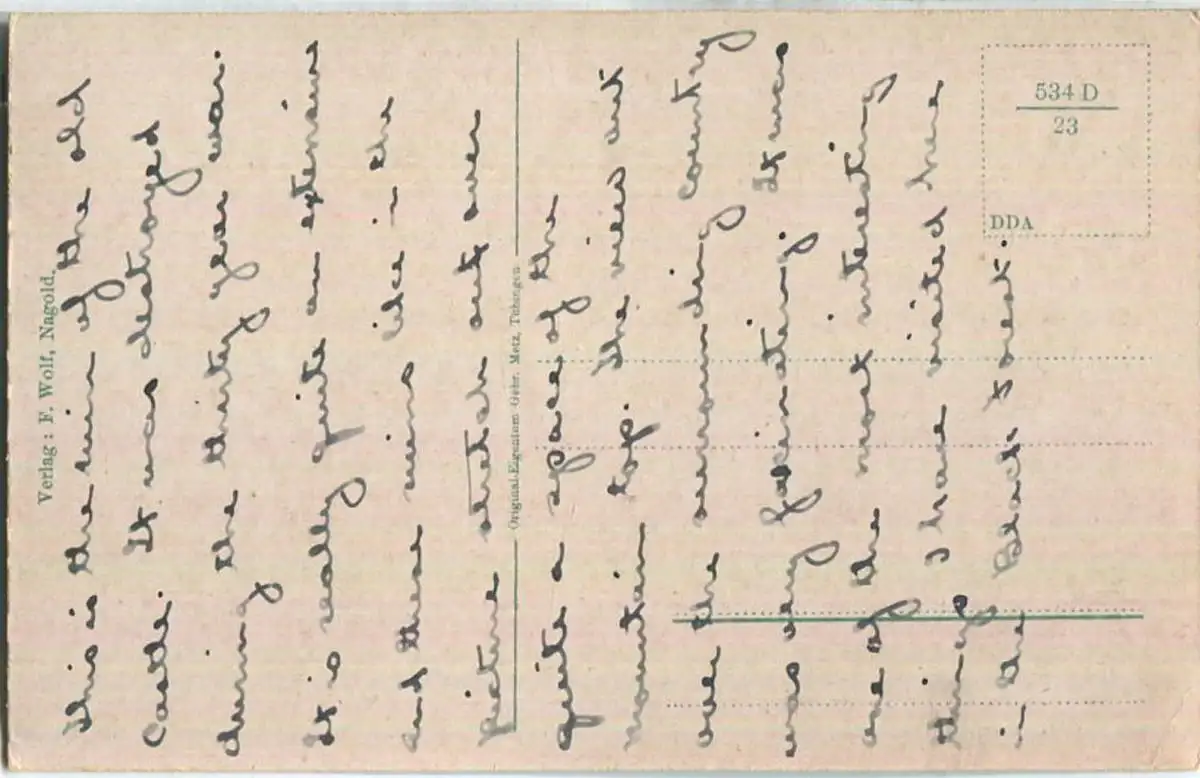 This is the ruin of the old
Castle. It was destroyed
during the thirty year war.
It is really quite an extensive
and these ruins like in the
picture stretch out over
quite a space of the
mountain top. The view out
over the surrounding country
was very fascinating. It was
one of the most interesting
things I have visited here
in the Black Forest.
Verlag: F. Wolf, Nagold.
Original-Eigentum Gebr. Metz, Tübingen
534 D
23
DDA